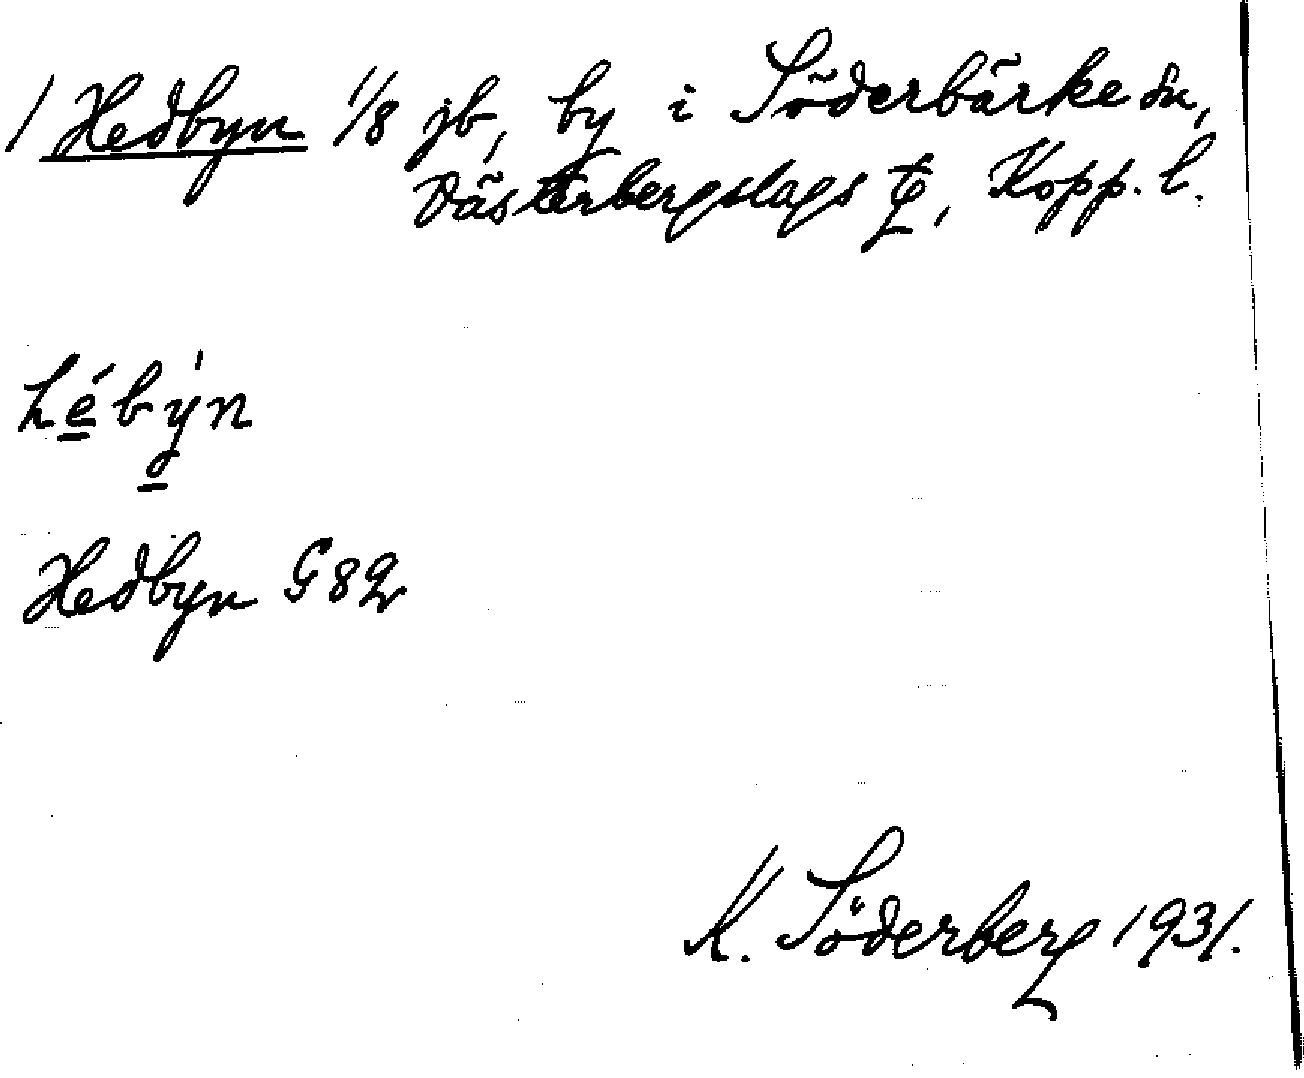 / Hedbyn 1/8 jb, by i Söderbärke sn,
Västerbergslags tg, Kopp. l.
hébýn
Hedbyn G 82
K. Söderberg 1931.